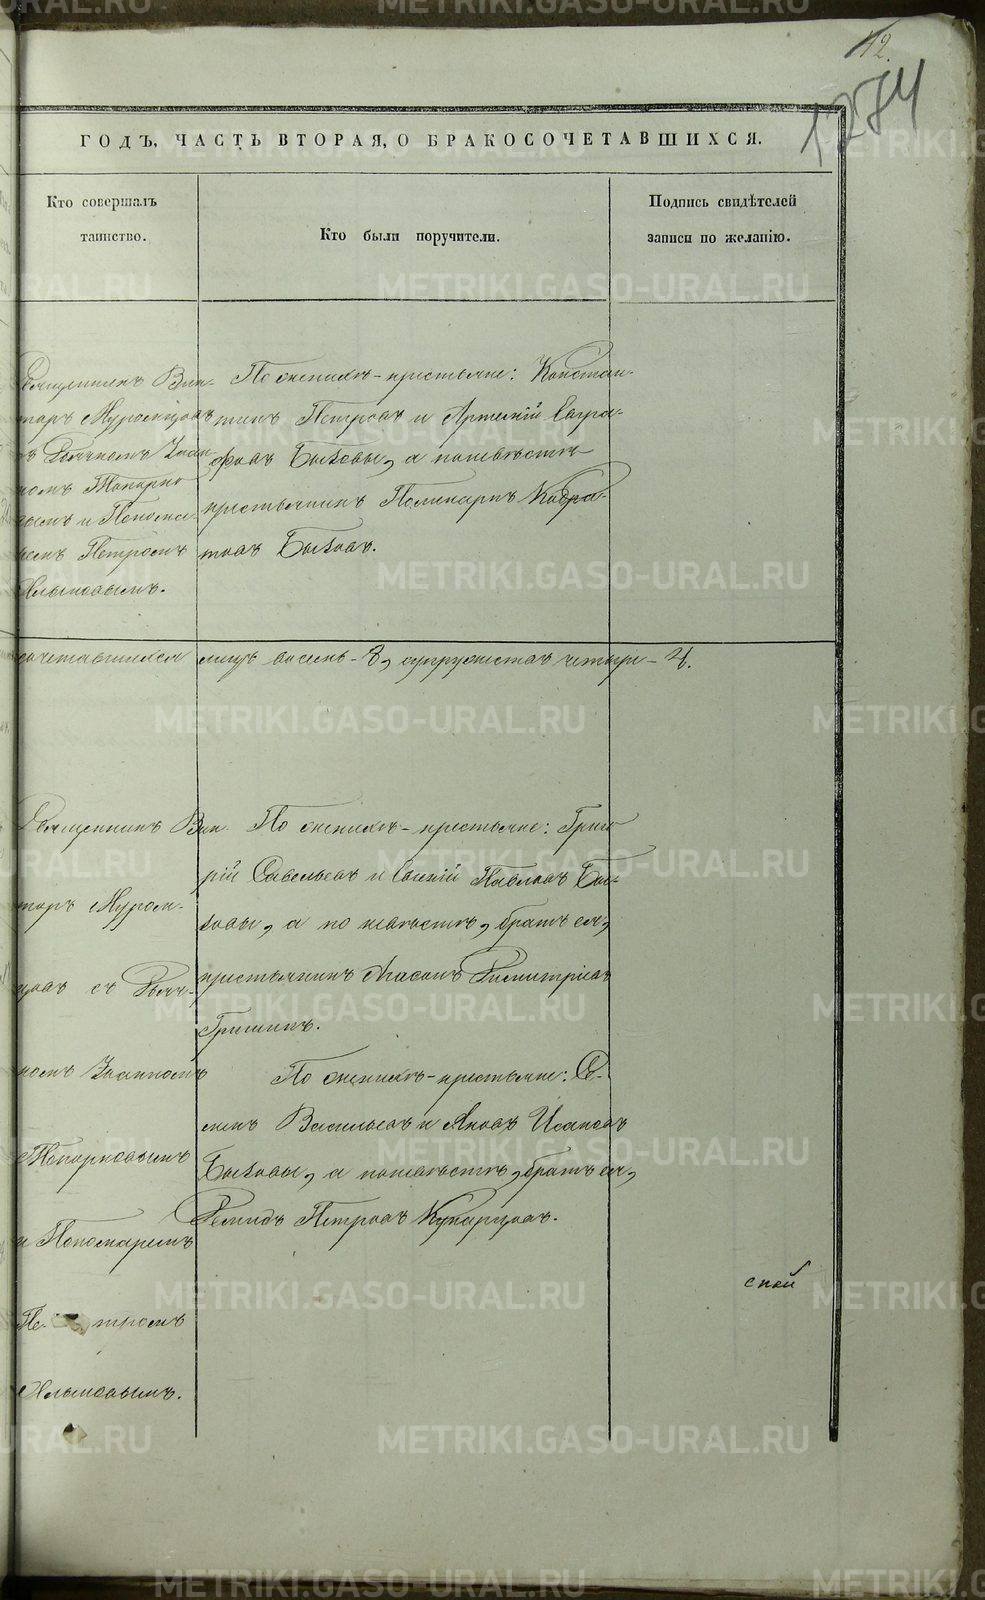 42.
1274
ГОДЪ, ЧАСТЬ ВТОРАЯ, О БРАКОСОЧЕТАВШИХСЯ.
Кто совершалъ
таинство.
Кто были поручители.
Подпись свидѣтелей
записи по желанію.
Священникъ Вик-
торъ Муромцовъ
съ Дьячкомъ Іоан
номъ Топорко
вымъ и Понома-
ремъ Петромъ
По женихѣ - крестьяне: Констан-
тинъ Петровъ и Артемій Евгра-
фовъ Быковы, а по невѣстѣ
крестьянинъ Поликарпъ Кодра-
товъ Быковъ.
сочетавшихся лицъ восемь - 8, супружествъ четыре - 4.
Священникъ Вик
торъ Муром-
цовъ съ Дьяч-
комъ Іоанномъ
Топорковымъ
и Пономаремъ
Петромъ
По женихѣ - крестьяне: Григо
рій Савельевъ и Павловъ Бы-
ковы, а по невѣстѣ, братъ ея,
крестьянинъ Димитріевъ
Гришинъ.
По женихѣ - крестьяне: Се-
менъ Васильевъ и Яковъ Исаковъ
Быковы, а по невѣстѣ, братъ ея,
Демидъ Петровъ
ской
METRIKI.GASO-URAL.RU